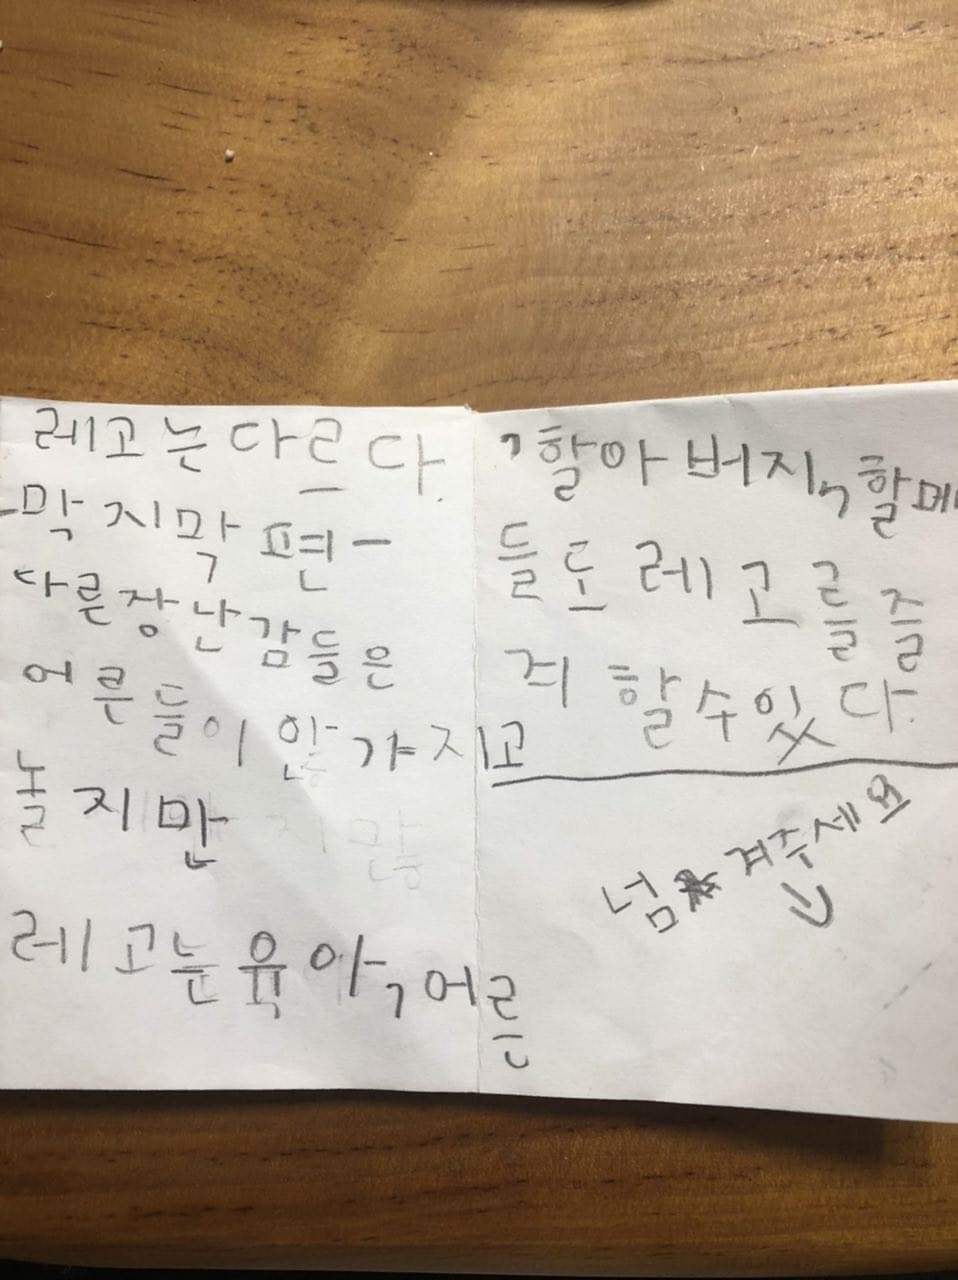 레고는다르다.
-막지막편-
다른장난감들은
어른들이안가지고
놀지만
레고는육아,어른
,할아버지,할메
들도레고를즐
긔할수있다.
넘겨주세요